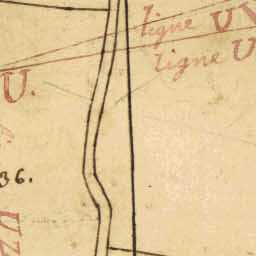 ligne UV
ligne U
U.
36.